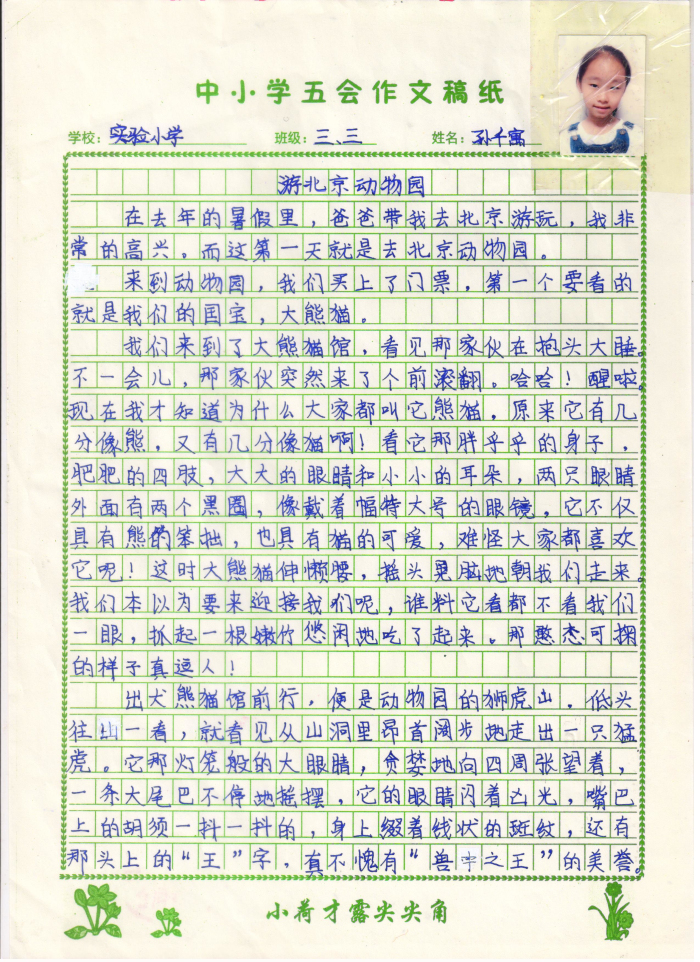 中小学五会作文稿纸
学校：实验小学 班级：三、三 姓名：孙千寓
游北京动物园
在去年的暑假里，爸爸带我去北京游玩，我非
常的高兴。而这第一天就是去北京动物园。
来到动物园，我们买上了门票，第一个要看的
就是我们的国宝，大熊猫。
我们来到了大熊猫馆，看见那家伙在抱头大睡。
不一会儿，那家伙突然来了个前滚翻。哈哈！醒啦。
现在我才知道为什么大家都叫它熊猫，原来它有几
分像熊，又有几分像猫啊！看它那胖乎乎的身子，
肥肥的四肢，大大的眼睛和小小的耳朵，两只眼睛
外面有两个黑圈，像戴着幅特大号的眼镜，它不仅
具有熊的笨拙，也具有猫的可爱，难怪大家都喜欢
它呢！这时大熊猫伸懒腰，摇头晃脑地朝我们走来。
我们本以为要来迎接我们呢，谁料它看都不看我们
一眼，抓起一根嫩竹悠闲地吃了起来。那憨态可掬
的样子真逗人！
出大熊猫馆前行，便是动物园的狮虎山。低头
往山一看，就看见从山洞里昂首阔步地走出一只猛
虎。它那灯笼般的大眼睛，贪婪地向四周张望着，
一条大尾巴不停地摇摆，它的眼睛闪着凶光，嘴巴
上的胡须一抖一抖的，身上缀着线状的斑纹，还有
那头上的“王”字，真不愧有“兽中之王”的美誉。
小荷才露尖尖角